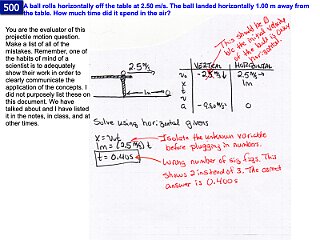 500
A ball rolls horizontally off the table at 2.50 m/s. The ball landed horizontally 1.00 m away from
the table. How much time did it spend in the air?
You are the evaluator of this
projectile motion question.
Make a list of all of the
mistakes. Remember, one of
the habits of mind of a
scientist is to adequately
show their work in order to
clearly communicate the
application of the concepts. I
did not purposely list these on
this document. We have
talked about and have listed
it in the notes, in class, and at
other times.
This should be 0
b/c the initial velocity
of the ball is only
horizontal
2.5 m/s
1m
VERTICAL
HORIZONTAL
v₀ -2.5 m/s 2.5 m/s
x 1m
t
v
a -9.80 m/s² 0
Solve using horizontal givens
x = v₀t
1m = (2.5 m/s) t
t = 0.40s
Isolate the unknown variable
before plugging in numbers.
Wrong number of sig figs. This
shows 2 instead of 3. The correct
answer is 0.400s